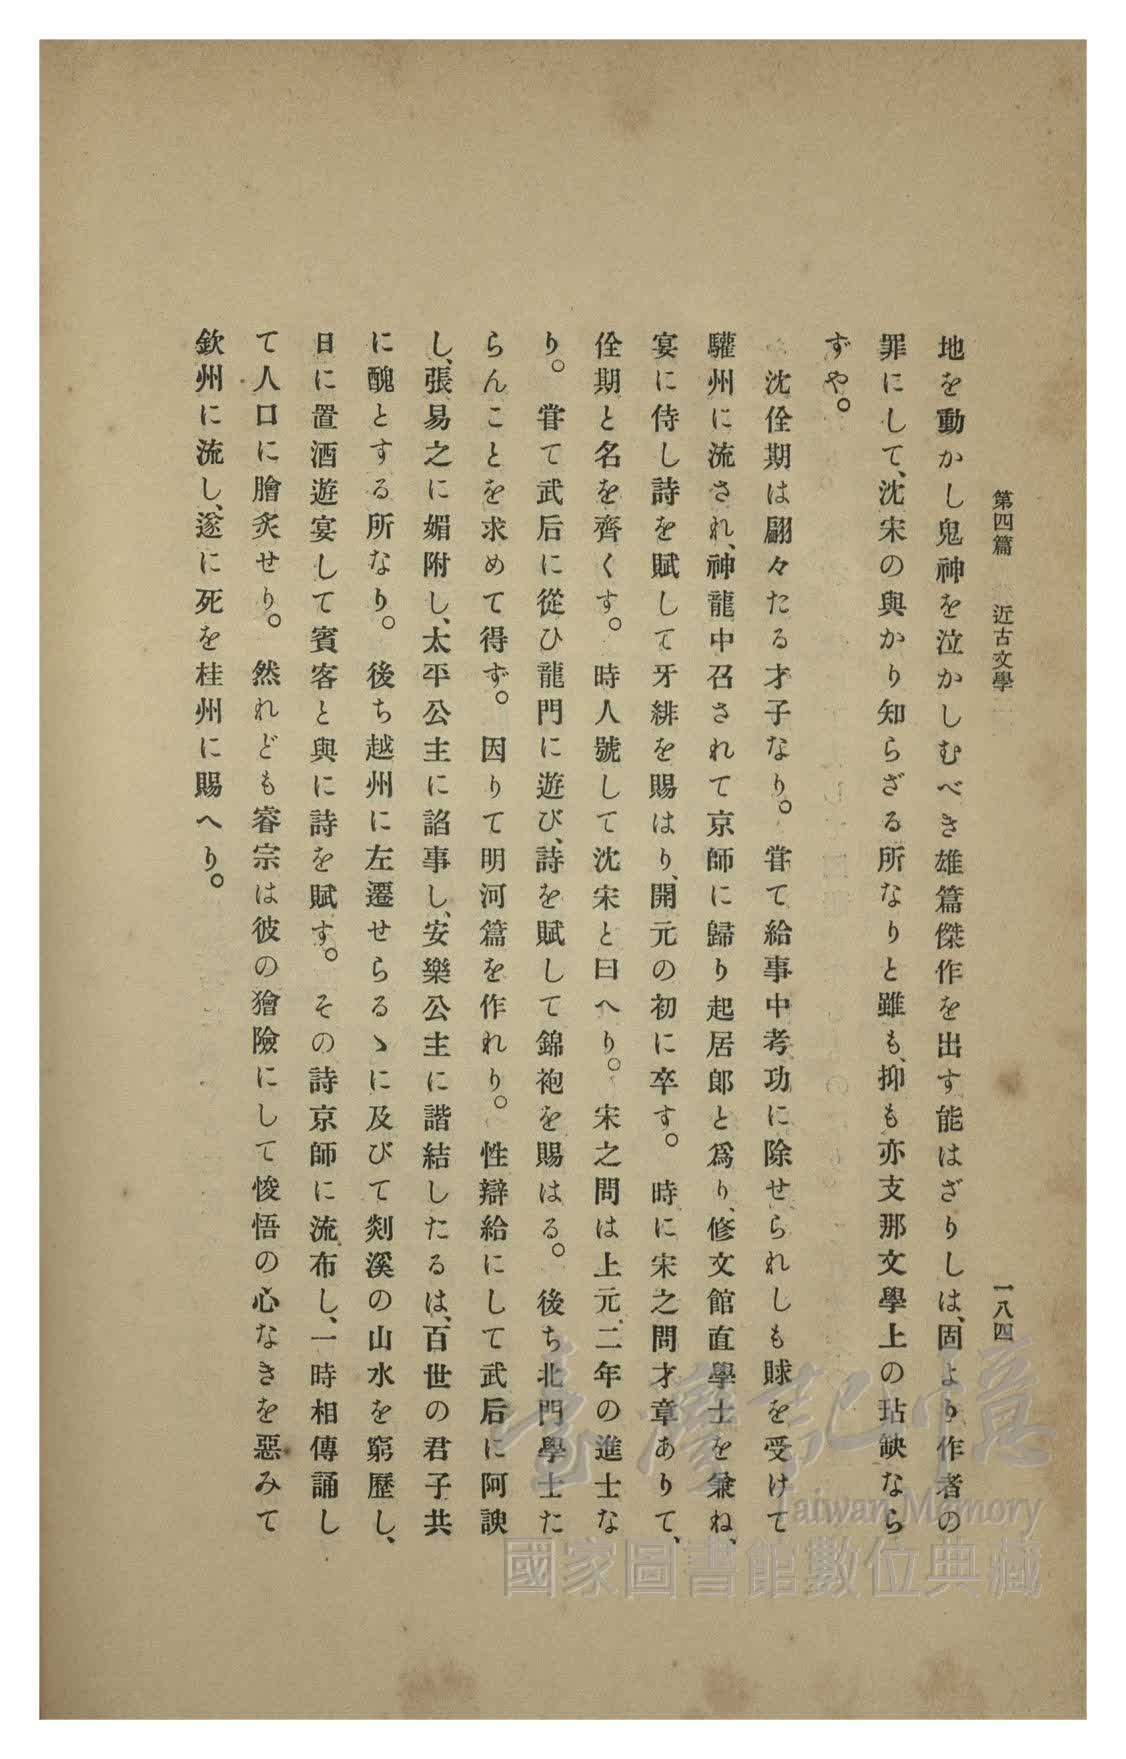 第四篇　近古文學
一八四
地を動かし鬼神を泣かしむべき雄篇傑作を出す能はざりしは、固より作者の
罪にして、沈宋の與かり知らざる所なりと雖も、抑も亦支那文學上の玷缺なら
ずや。
沈佺期は翩々たる才子なり。嘗て給事中考功に除せられしも賕を受けて
驩州に流され、神龍中召されて京師に歸り起居郎と爲り、修文館直學士を兼ね、
宴に侍し詩を賦して牙緋を賜はり、開元の初に卒す。時に宋之問才章ありて、
佺期と名を齊くす。時人號して沈宋と曰へり。宋之問は上元二年の進士な
り。嘗て武后に從ひ龍門に遊び、詩を賦して錦袍を賜はる。後ち北門學士た
らんことを求めて得ず。因りて明河篇を作れり。性辯給にして武后に阿諛
し、張易之に媚附し、太平公主に諂事し、安樂公主に諧結したるは、百世の君子共
に醜とする所なり。後ち越州に左遷せらるゝに及びて剡溪の山水を窮歷し、
日に置酒遊宴して賓客と與に詩を賦す。その詩京師に流布し、一時相傳誦し
て人口に膾炙せり。然れども睿宗は彼の獪險にして悛悟の心なきを惡みて
欽州に流し、遂に死を桂州に賜へり。
臺灣記憶
Taiwan Memory
國家圖書館數位典藏